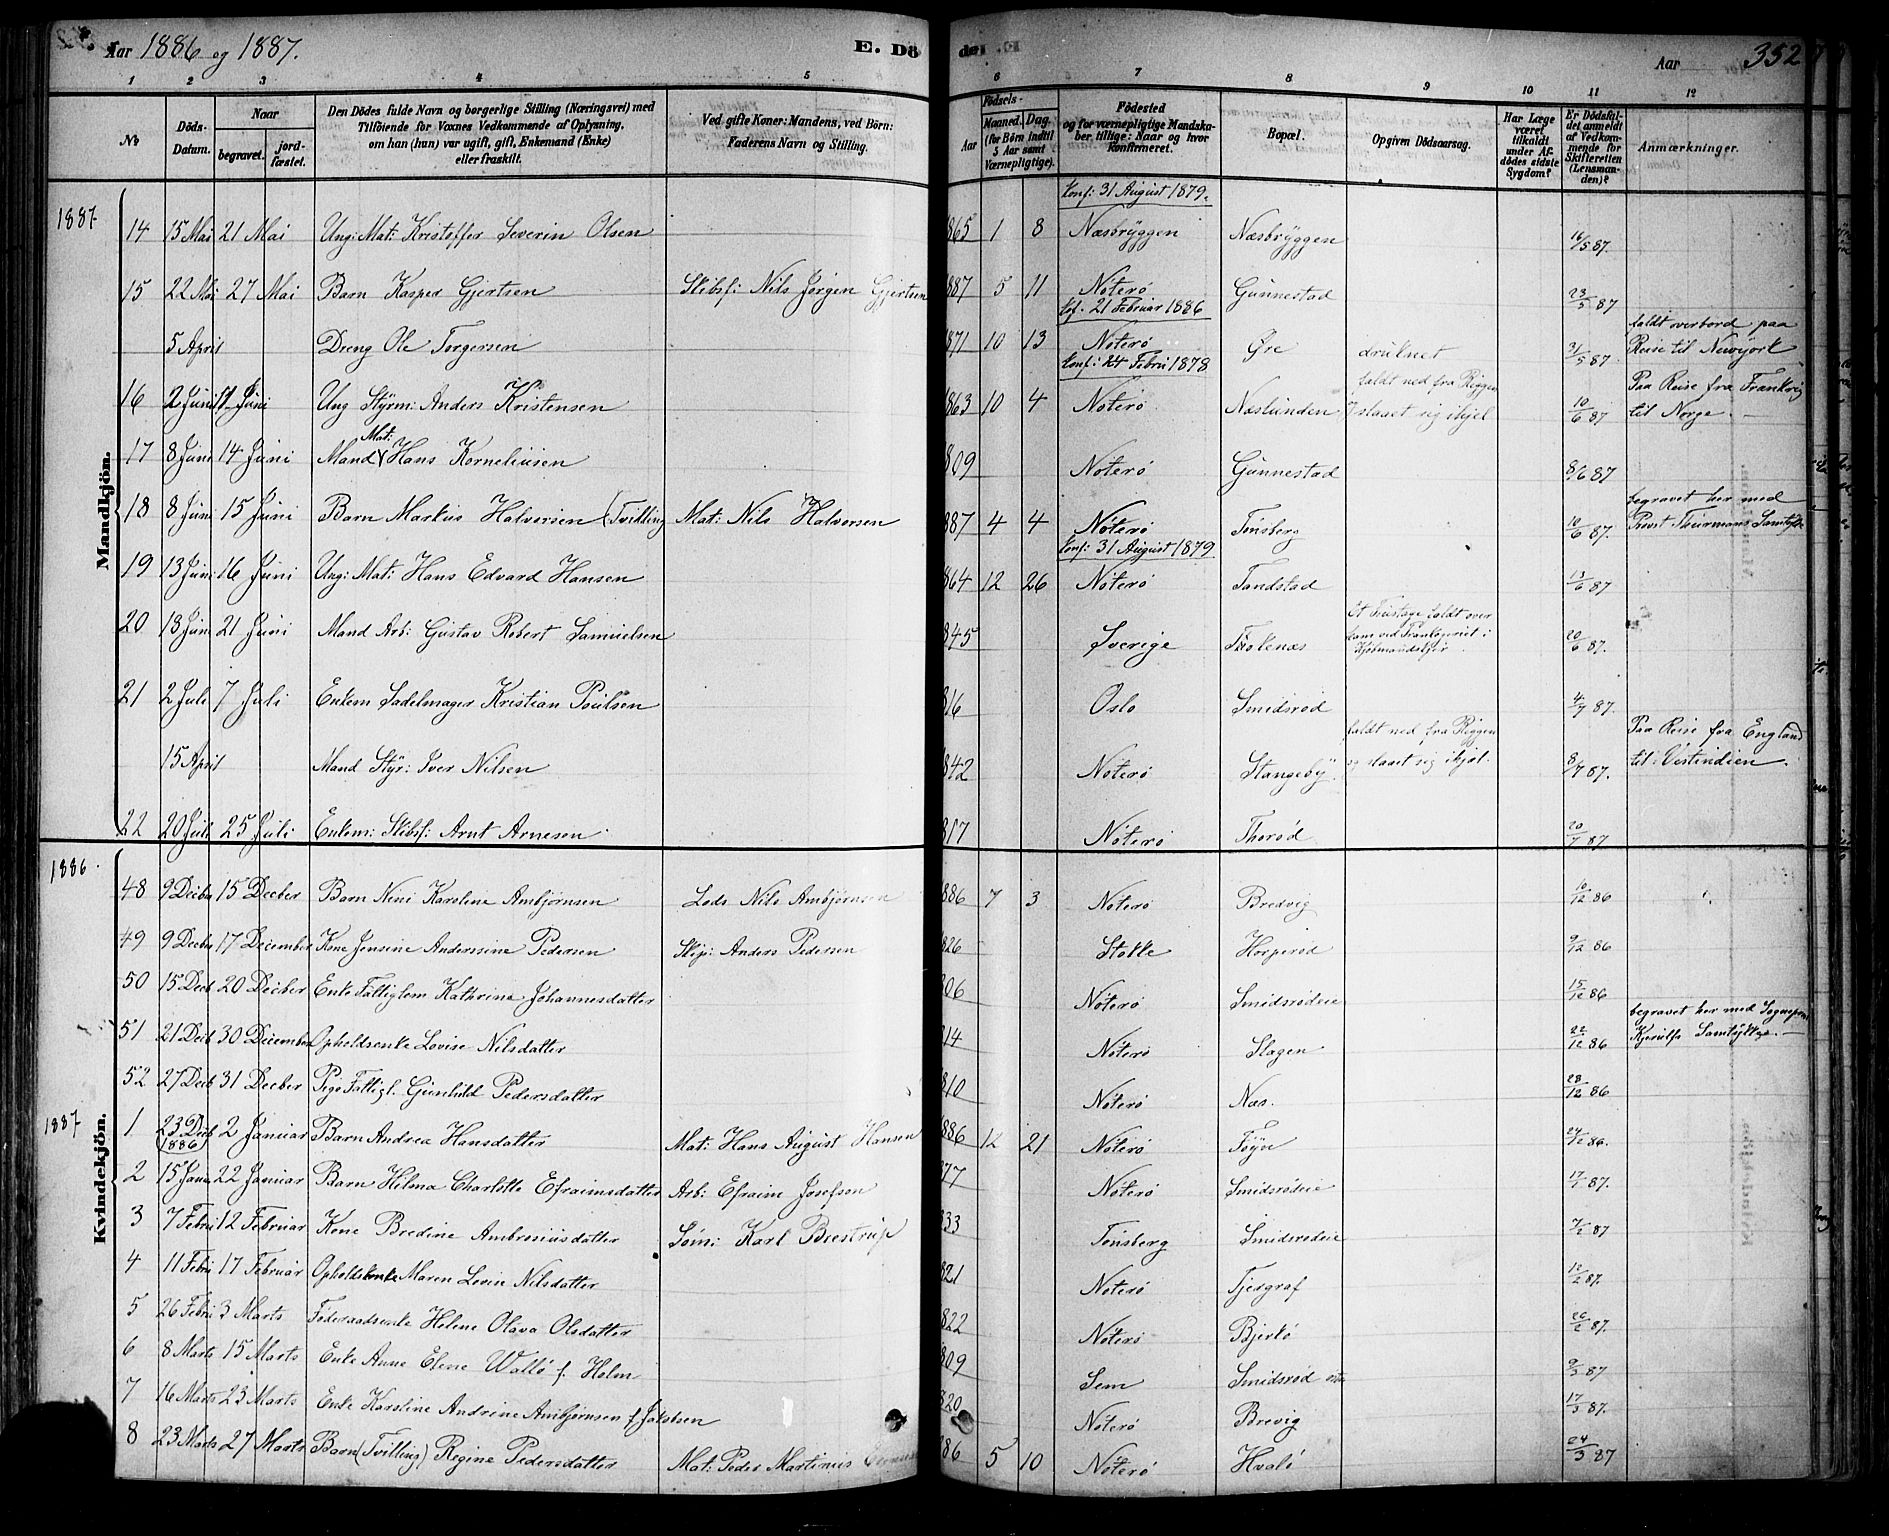 Aar 1886 og 1887.
E. Dö
Aar 352
1 2 3 4 5 6 7 8 9 10 11 12
No
Döds-Datum.
Naar
begravet. jordfæstet.
Den Dödes fulde Navn og borgerlige Stilling (Næringsvei) med
Tilföiende for Voxnes Vedkommende af Oplysning,
om han (hun) var ugift, gift, Enkemand (Enke)
eller fraskilt.
Ved gifte Koner: Mandens, ved Börn:
Faderens Navn og Stilling.
Födsels-
Aar Maaned. Dag.
(for Börn indtil
5 Aar samt
Værnepligtige).
Födested
og for værnepligtige Mandska-
ber, tillige: Naar og hvor
konfirmeret.
Bopæl.
Opgiven Dödsaarsag.
Har Læge
været
tilkaldt
under Af-
dödes sidste
Sygdom?
Er Dödsfal-
det anmeldt
af Vedkom-
mende for
Skifteretten
(Lensman-
den)?
Anmærkninger.
Mandkjön.
1887
Konf: 31 August 1879.
14 15 Mai 21 Mai Ung: Mat: Kristoffer Severin Olsen 865 1 8 Næsbryggen Næsbryggen 16/5 87.
15 22 Mai 27 Mai Barn Kasper Gjertsen Skibsf: Nils Jørgen Gjertsen 887 5 11 Nøterø Gunnestad 23/5 87
Kof. 21 Februar 1886
5 April Dreng Ole Torgersen 871 10 13 Nøterø Øre druknet 31/5 87 faldt overbord paa
Reise til Newyork
Konf: 24 Febru 1878
16 2 Juni 11 Juni Ung Styrm: Anders Kristensen 863 10 4 Nøterø Næslunden faldt ned fra Riggen
og slaaet sig ihjel 10/6 87 Paa Reise fra Frankrig
til Norge.
17 8 Juni 14 Juni Mand Mat: Hans Korneliusen 809 Nøterø Gunnestad 8/6 87
18 8 Juni 15 Juni Barn Markus Halversen (Tvilling Mat: Nils Halvorsen 887 4 4 Nøterø Tønsberg 10/6 87. begravet her med
Provst Thurmans Samtykke
Konf: 31 August 1879
19 13 Juni 16 Juni Ung: Mat: Hans Edvard Hansen 864 12 26 Nøterø Tandstad 13/6 87
20 18 Juni 21 Juni Mand Arb: Gustav Robert Samuelsen 845 Sverige Tholenæs Et Fustage faldt over
ham ved Trankogeriet i
Kjøbmandskjær 20/6 87.
21 2 Juli 7 Juli Enkem Sadelmager Kristian Poulsen 816 Oslo Smidsrød 4/7 87.
15 April Mand Styr: Iver Nilsen 842 Nøterø Stangeby faldt ned fra Riggen
og slaaet sig ihjel. 8/7 87. Paa Reise fra England
til Vestindien.
22 20 Juli 25 Juli Enkem: Skibsf: Arnt Arnesen 817 Nøterø Thorød 20/7 87
Kvindekjön.
1886.
48 9 Decbr 15 Decber Barn Nini Karoline Ambjørnsen Lods Nils Ambjørnsen 886 7 3 Nøterø Bredvig 10/12 86
49 9 Decbr 17 December Kone Jensine Anderssine Pedersen Skip: Anders Pedersen 826 Stokke Horperød 9/12 86
50 15 Decb 20 Decber Enke Fattiglem Kathrine Johannesdatter 806 Nøterø Smidsrødeie 15/12 86
51 21 Decb 30 December Opholdsenke Lovise Nilsdatter 814 Nøterø Slagen 22/12 86 begravet her med Sognepr
Kjerulfs Samtykke.
52 27 Decb 31 Decber Pige Fattigl. Gunhild Pedersdatter 810 Nøterø Næs. 28/12 86
1887
1 23 Decb (1886) 2 Januar Barn Andrea Hansdatter Mat: Hans August Hansen 886 12 21 Nøterø Føyn 24/12 86.
2 15 Janu 22 Januar Barn Hilma Charlotte Efraimsdatter Arb: Efraim Josefson 877 Nøterø Smidsrødeie 17/1 87.
3 7 Febru 12 Februar Kone Bredine Ambrosiusdatter Søm: Karl Brestrup 833 Tønsberg Smidsrødeie 7/2 87
4 11 Febru 17 Februar Opholdsenke Maren Lovise Nilsdatter 821 Nøterø Tjersgraf 12/2 87.
5 26 Febru 3 Marts Føderaadsenke Helene Olava Olsdatter 822 Nøterø Bjerkø 26/2 87.
6 8 Marts 15 Marts Enke Anne Elene Wallø f. Holm 809 Sem Smidsrød 9/3 87
7 16 Marts 23 Marts Enke Karoline Andrine Ambjørnsen f Jakobsen 820 Nøterø Brevig 17/3 87.
8 23 Marts 27 Marts Barn (Tvilling) Regine Pedersdatter Mat: Peder Martinus 886 5 10 Nøterø Hvalø 24/3 87